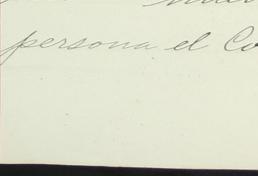 persona el Co